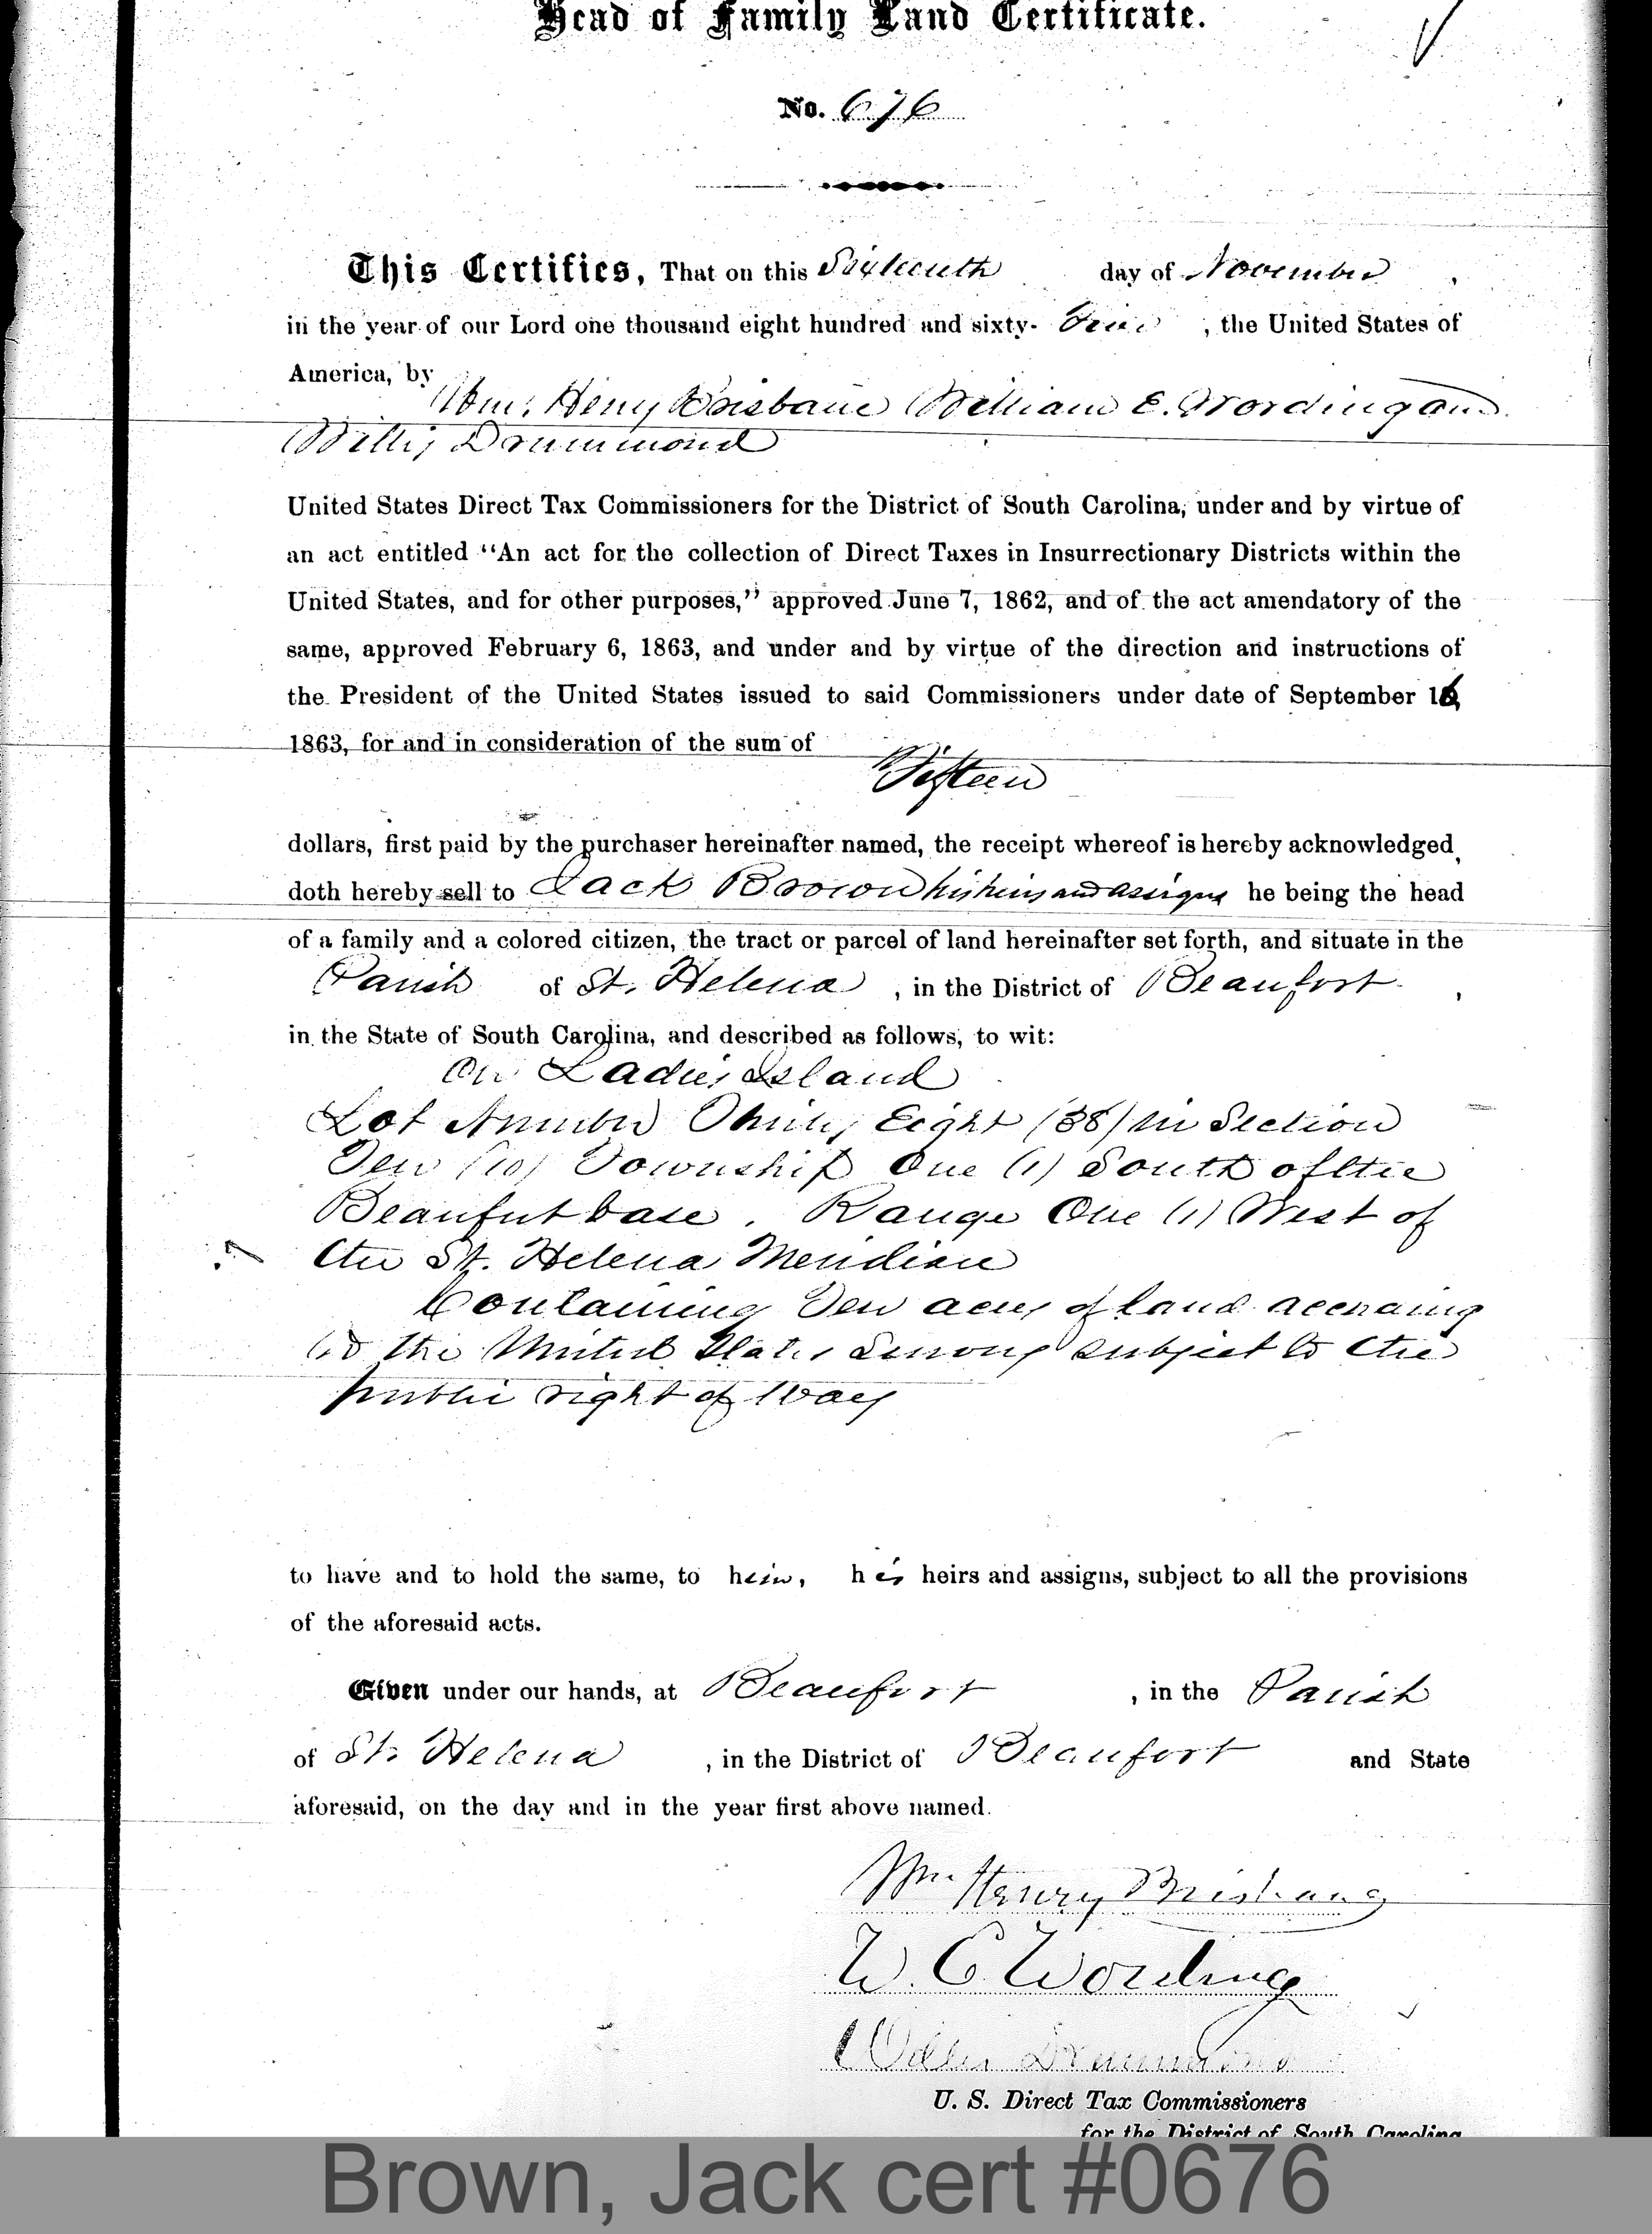 Head of Family Land Certificate.
No. 676
This Certifies, That on this Sixteenth day of November,
in the year of our Lord one thousand eight hundred and sixty- , the United States of
America, by
Wm. Henry Brisbane William E. Wording and
Willis Drummond
United States Direct Tax Commissioners for the District of South Carolina, under and by virtue of
an act entitled "An act for the collection of Direct Taxes in Insurrectionary Districts within the
United States, and for other purposes," approved June 7, 1862, and of the act amendatory of the
same, approved February 6, 1863, and under and by virtue of the direction and instructions of
the President of the United States issued to said Commissioners under date of September 16,
1863, for and in consideration of the sum of
Fifteen
dollars, first paid by the purchaser hereinafter named, the receipt whereof is hereby acknowledged,
doth hereby sell to Jack Brown his heirs and assigns he being the head
of a family and a colored citizen, the tract or parcel of land hereinafter set forth, and situate in the
Parish of St. Helena, in the District of Beaufort,
in the State of South Carolina, and described as follows, to wit:
On Ladies Island
Lot Number Thirty Eight (38) in Section
Ten (10) Township One (1) South of the
Beaufort base. Range One (1) West of
the St. Helena Meridian
Containing Ten acres of land according
to the United States Survey subject to the
public right of way
to have and to hold the same, to him, his heirs and assigns, subject to all the provisions
of the aforesaid acts.
Given under our hands, at Beaufort, in the Parish
of St. Helena, in the District of Beaufort and State
aforesaid, on the day and in the year first above named.
Wm. Henry Brisbane
W. E. Wording
Willis Drummond
U. S. Direct Tax Commissioners
for the District of South Carolina
Brown, Jack cert #0676